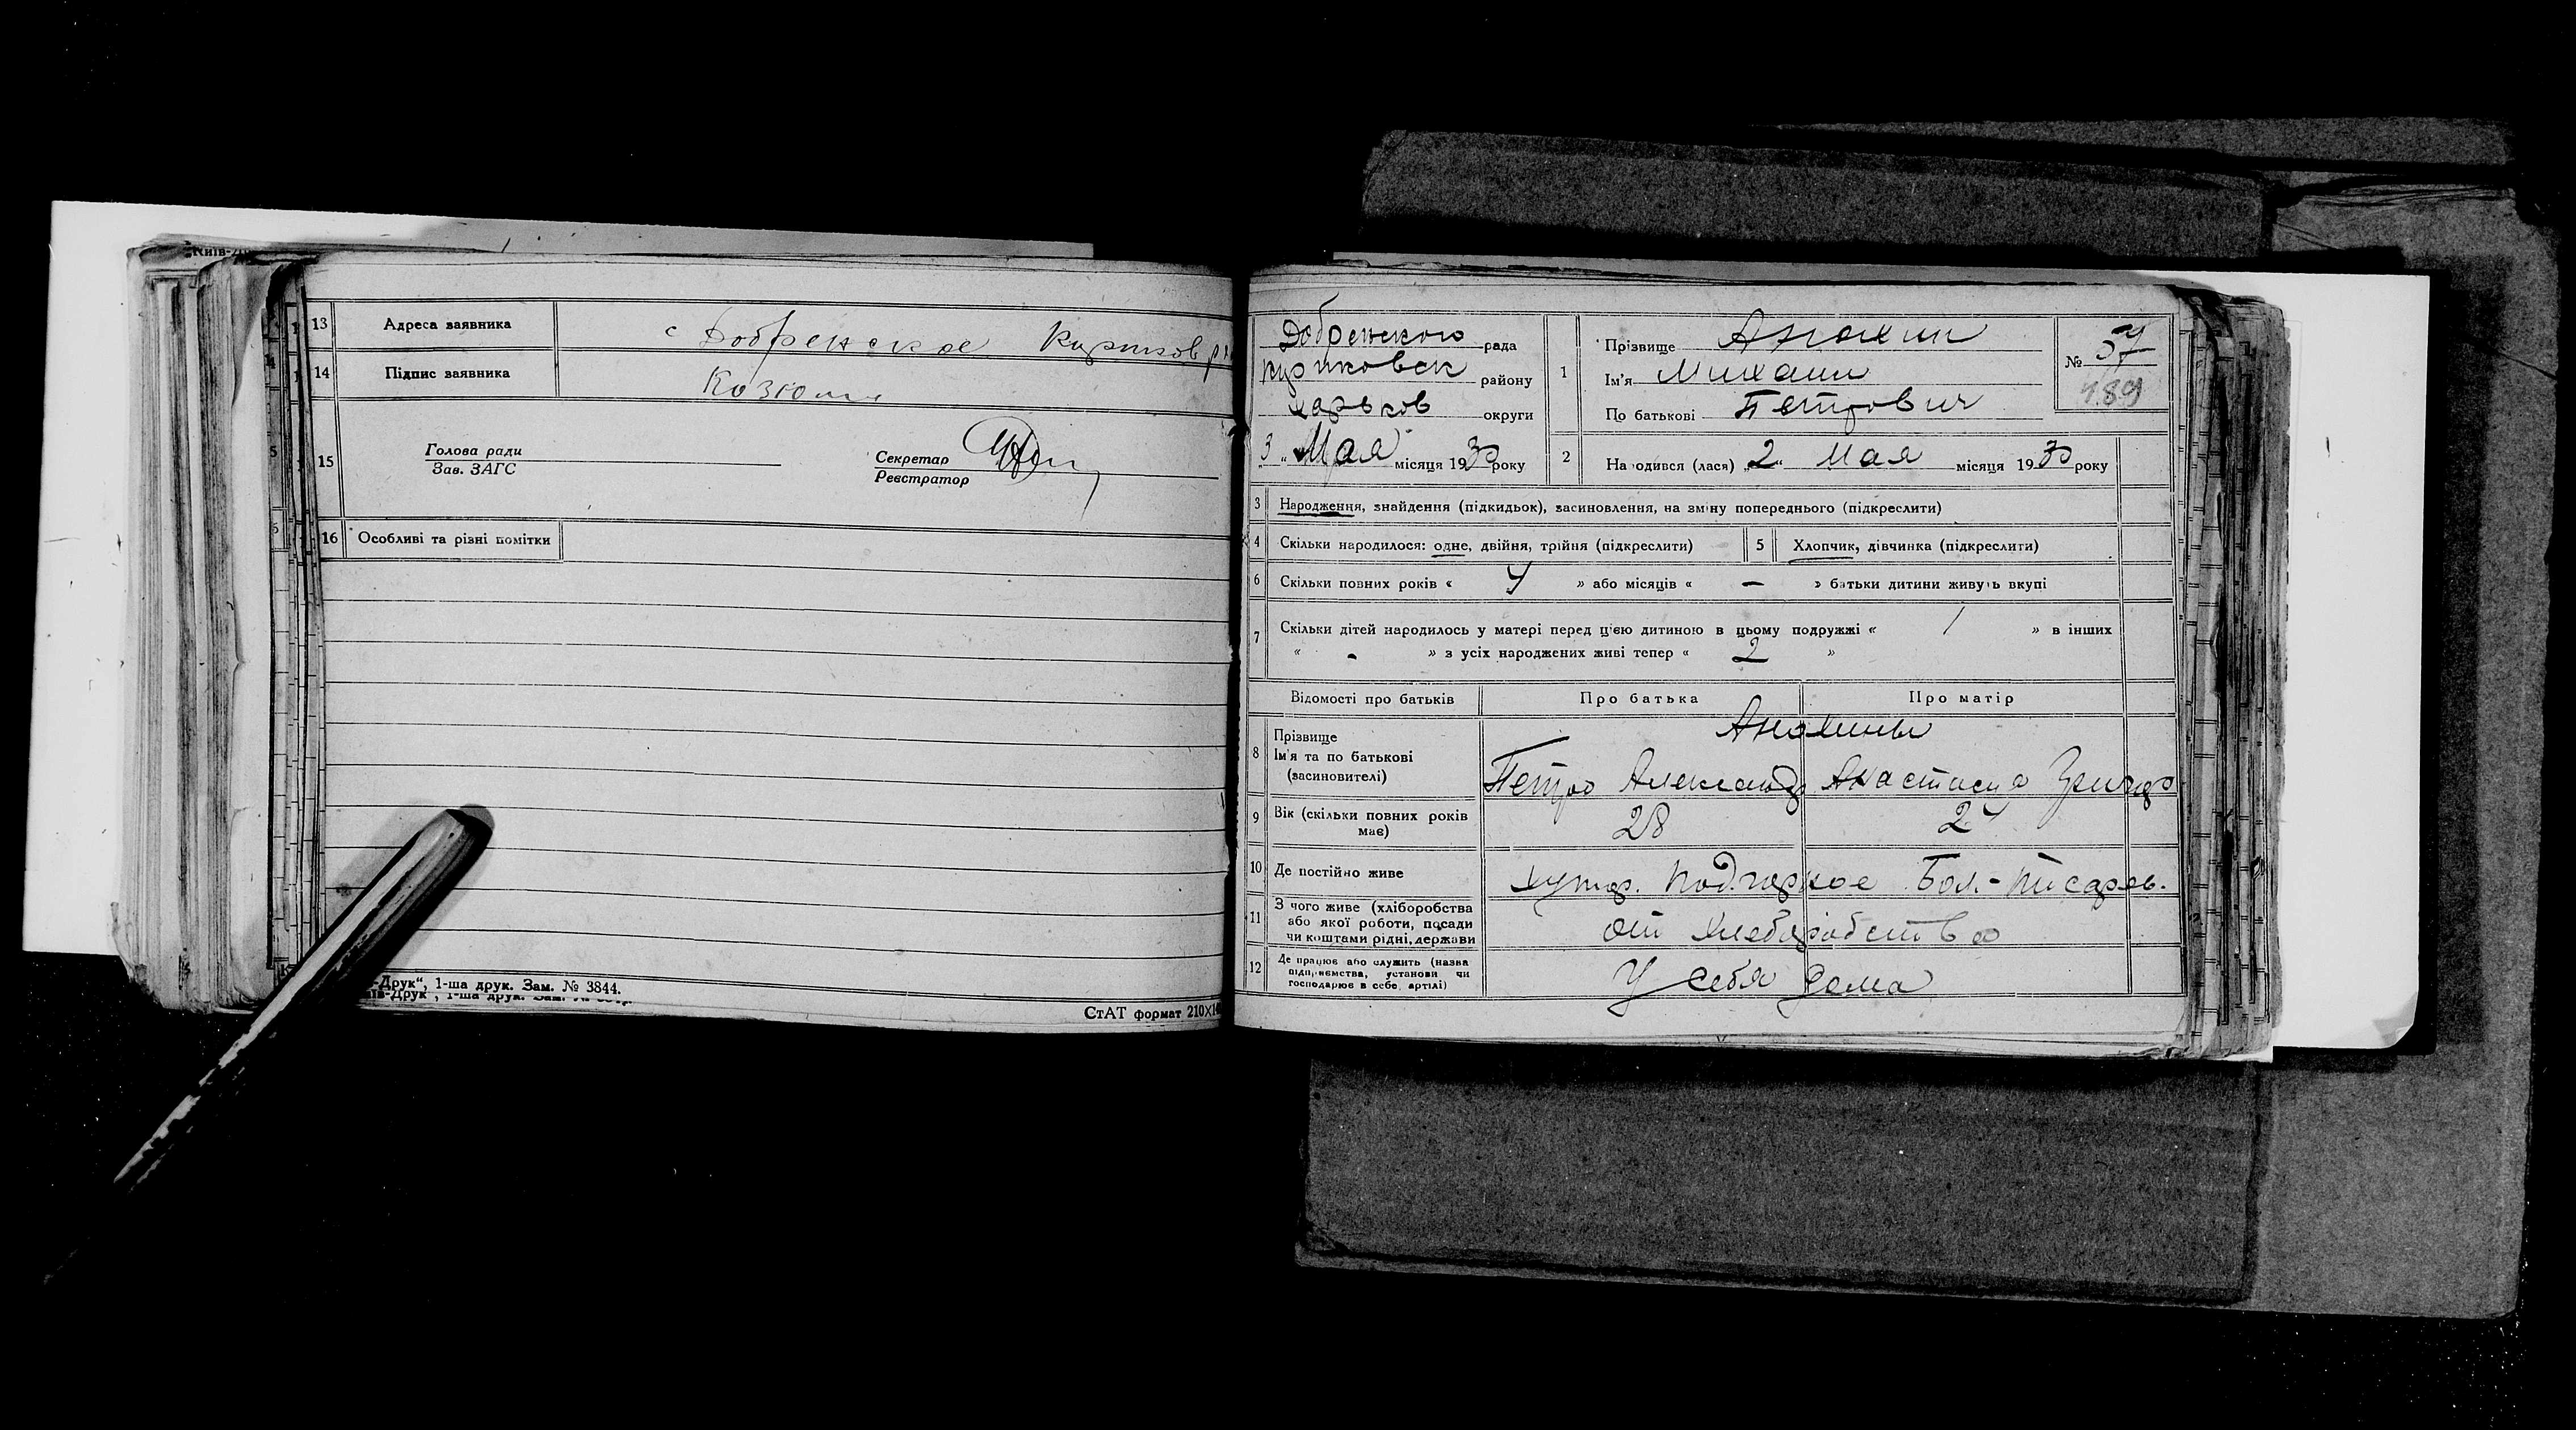 Київ-Др
13 Адреса заявника с Добренское Куриков р-н
14 Підпис заявника Козюли
15 Голова ради
Зав. ЗАГС
Секретар
Реєстратор
16 Особливі та різні помітки
-Друк“, 1-ша друк. Зам. № 3844.
СтАТ формат 210×1
Добренского рада
района
Харьков округи
3 „ Мая місяця 1930 року
1 Прізвище Анохин
Ім'я Михаил
По батькові Петрович
№ 57
189
2 На одився (лася) „2“ Мая місяця 1930 року
3 Народження, знайдення (підкидьок), засиновлення, на зміну попереднього (підкреслити)
4 Скільки народилося: одне, двійня, трійня (підкреслити)
5 Хлопчик, дівчинка (підкреслити)
6 Скільки повних років « 4 » або місяців « – » батьки дитини живуть вкупі
7 Скільки дітей народилось у матері перед цією дитиною в цьому подружжі « 1 » в інших
« - » з усіх народжених живі тепер « 2 »
Відомості про батьків Про батька Про матір
8 Прізвище
Ім'я та по батькові
(засиновителі)
Анохины
Петро Александр Анастасия Григор
9 Вік (скільки повних років
має)
28 24
10 Де постійно живе хутор. Подгаркое Бол.-Писарев.
11 З чого живе (хліборобства
або якої роботи, посади
чи коштами рідні, держави
от хлеборобства
12 Де працює або служить (назва
підприємства, установи чи
господарює в себе, артілі)
У себя дома